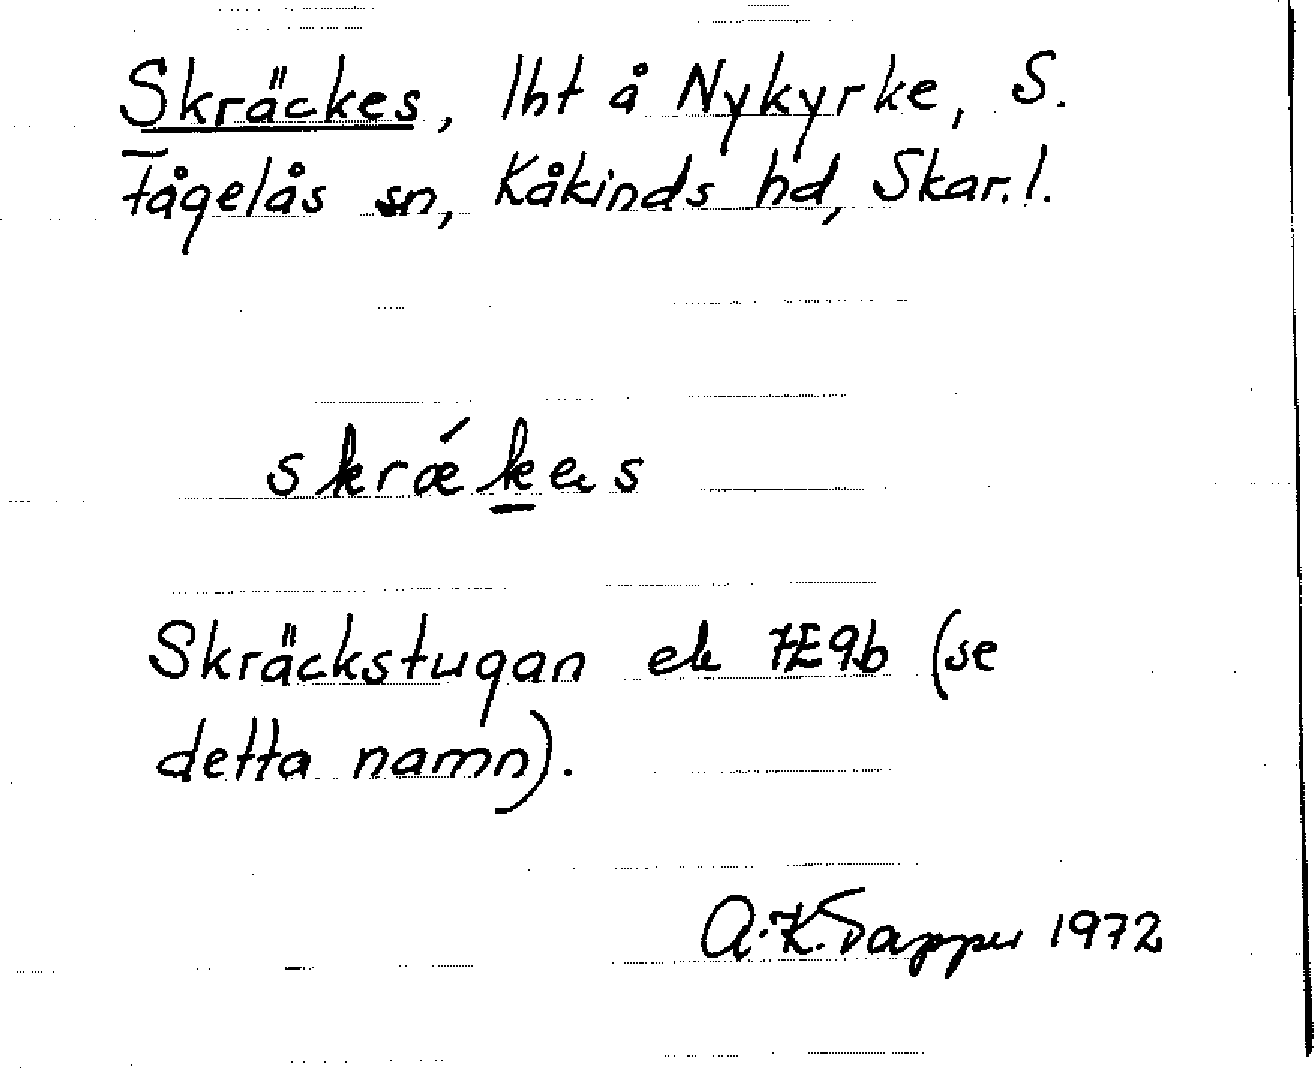 Skräckes, lht å Nykyrke, S.
Fågelås sn, Kåkinds hd, Skar.l.
skrǽkes
Skräckstugan ek 7E9b (se
detta namn).
A.K. Tapper 1972